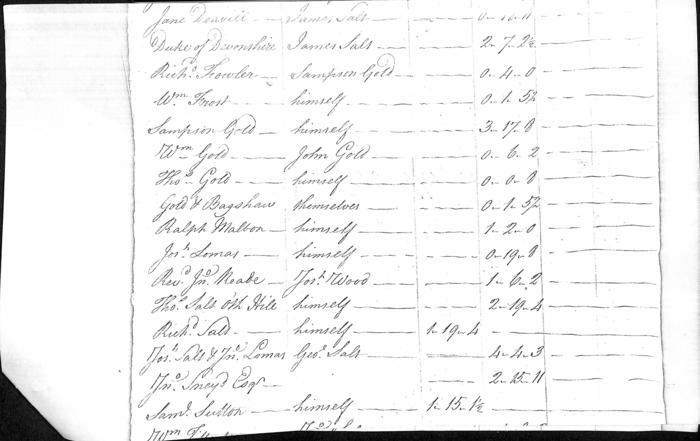 Jane Deavill — James Salt — 0-16-11
Duke of Devonshire James Salt — 2-7-2½
Richd. Fowler — Sampson Gold — 0-4-0
Wm. Frost — himself — 0-1-5½
Sampson Gold — himself — 3-17-8
Wm. Gold — John Gold — 0-6-2
Thos. Gold — himself — 0-0-8
Gold & Bagshaw themselves — 0-1-5½
Ralph Malbon — himself — 1-2-0
Josh. Lomas — himself — 0-19-8
Revd. Jno. Roade — Josh. Wood — 1-6-2
Thos. Salt o'th Hile himself — 2-19-4
Richd. Salt — himself — 1-19-4
Josh. Salt & Jno. Lomas Geoe. Salt — 4-4-3
Jno. Sneyd Esqr. — 2-15-11
Saml. Sutton — himself — 1-15-1½
Wm.